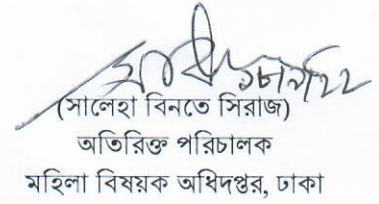 (সালেহা বিনতে সিরাজ)
অতিরিক্ত পরিচালক
মহিলা বিষয়ক অধিদপ্তর, ঢাকা